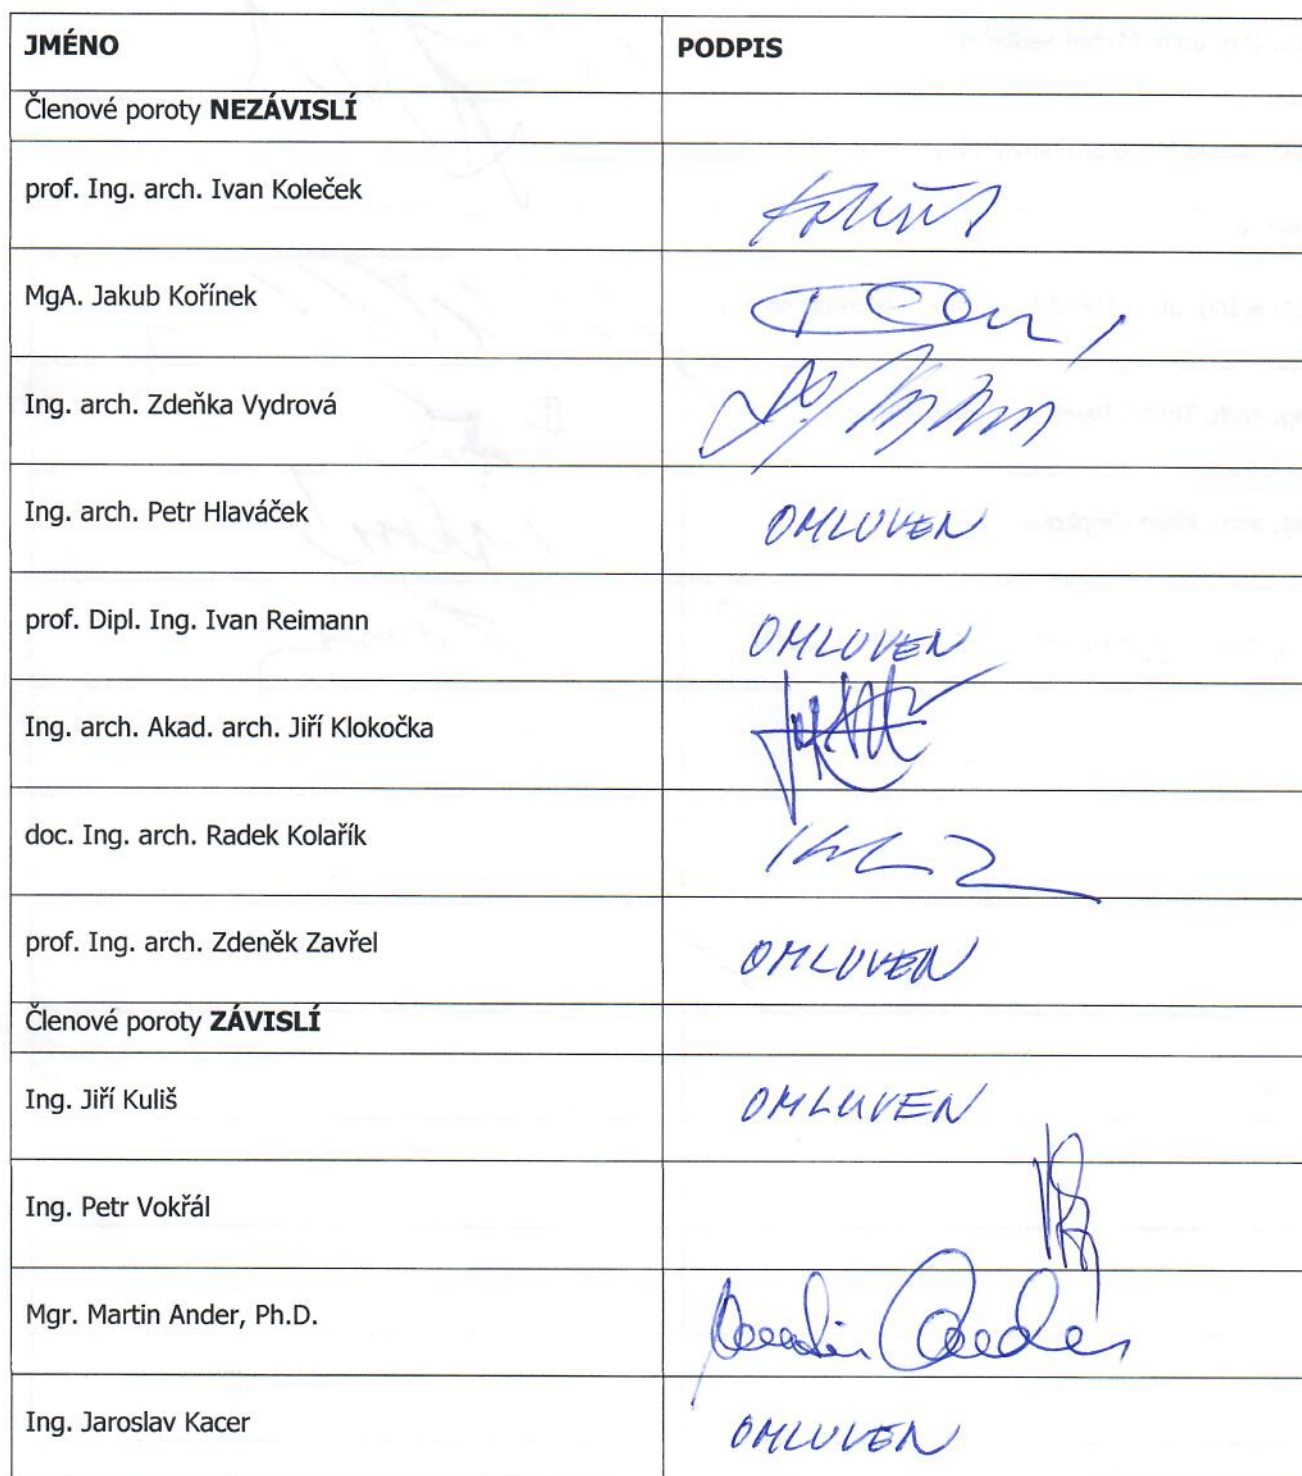 JMÉNO PODPIS
Členové poroty NEZÁVISLÍ
prof. Ing. arch. Ivan Koleček
MgA. Jakub Kořínek
Ing. arch. Zdeňka Vydrová
Ing. arch. Petr Hlaváček OMLUVEN
prof. Dipl. Ing. Ivan Reimann OMLUVEN
Ing. arch. Akad. arch. Jiří Klokočka
doc. Ing. arch. Radek Kolařík
prof. Ing. arch. Zdeněk Zavřel OMLUVEN
Členové poroty ZÁVISLÍ
Ing. Jiří Kuliš OMLUVEN
Ing. Petr Vokřál
Mgr. Martin Ander, Ph.D. Martin Ander
Ing. Jaroslav Kacer OMLUVEN